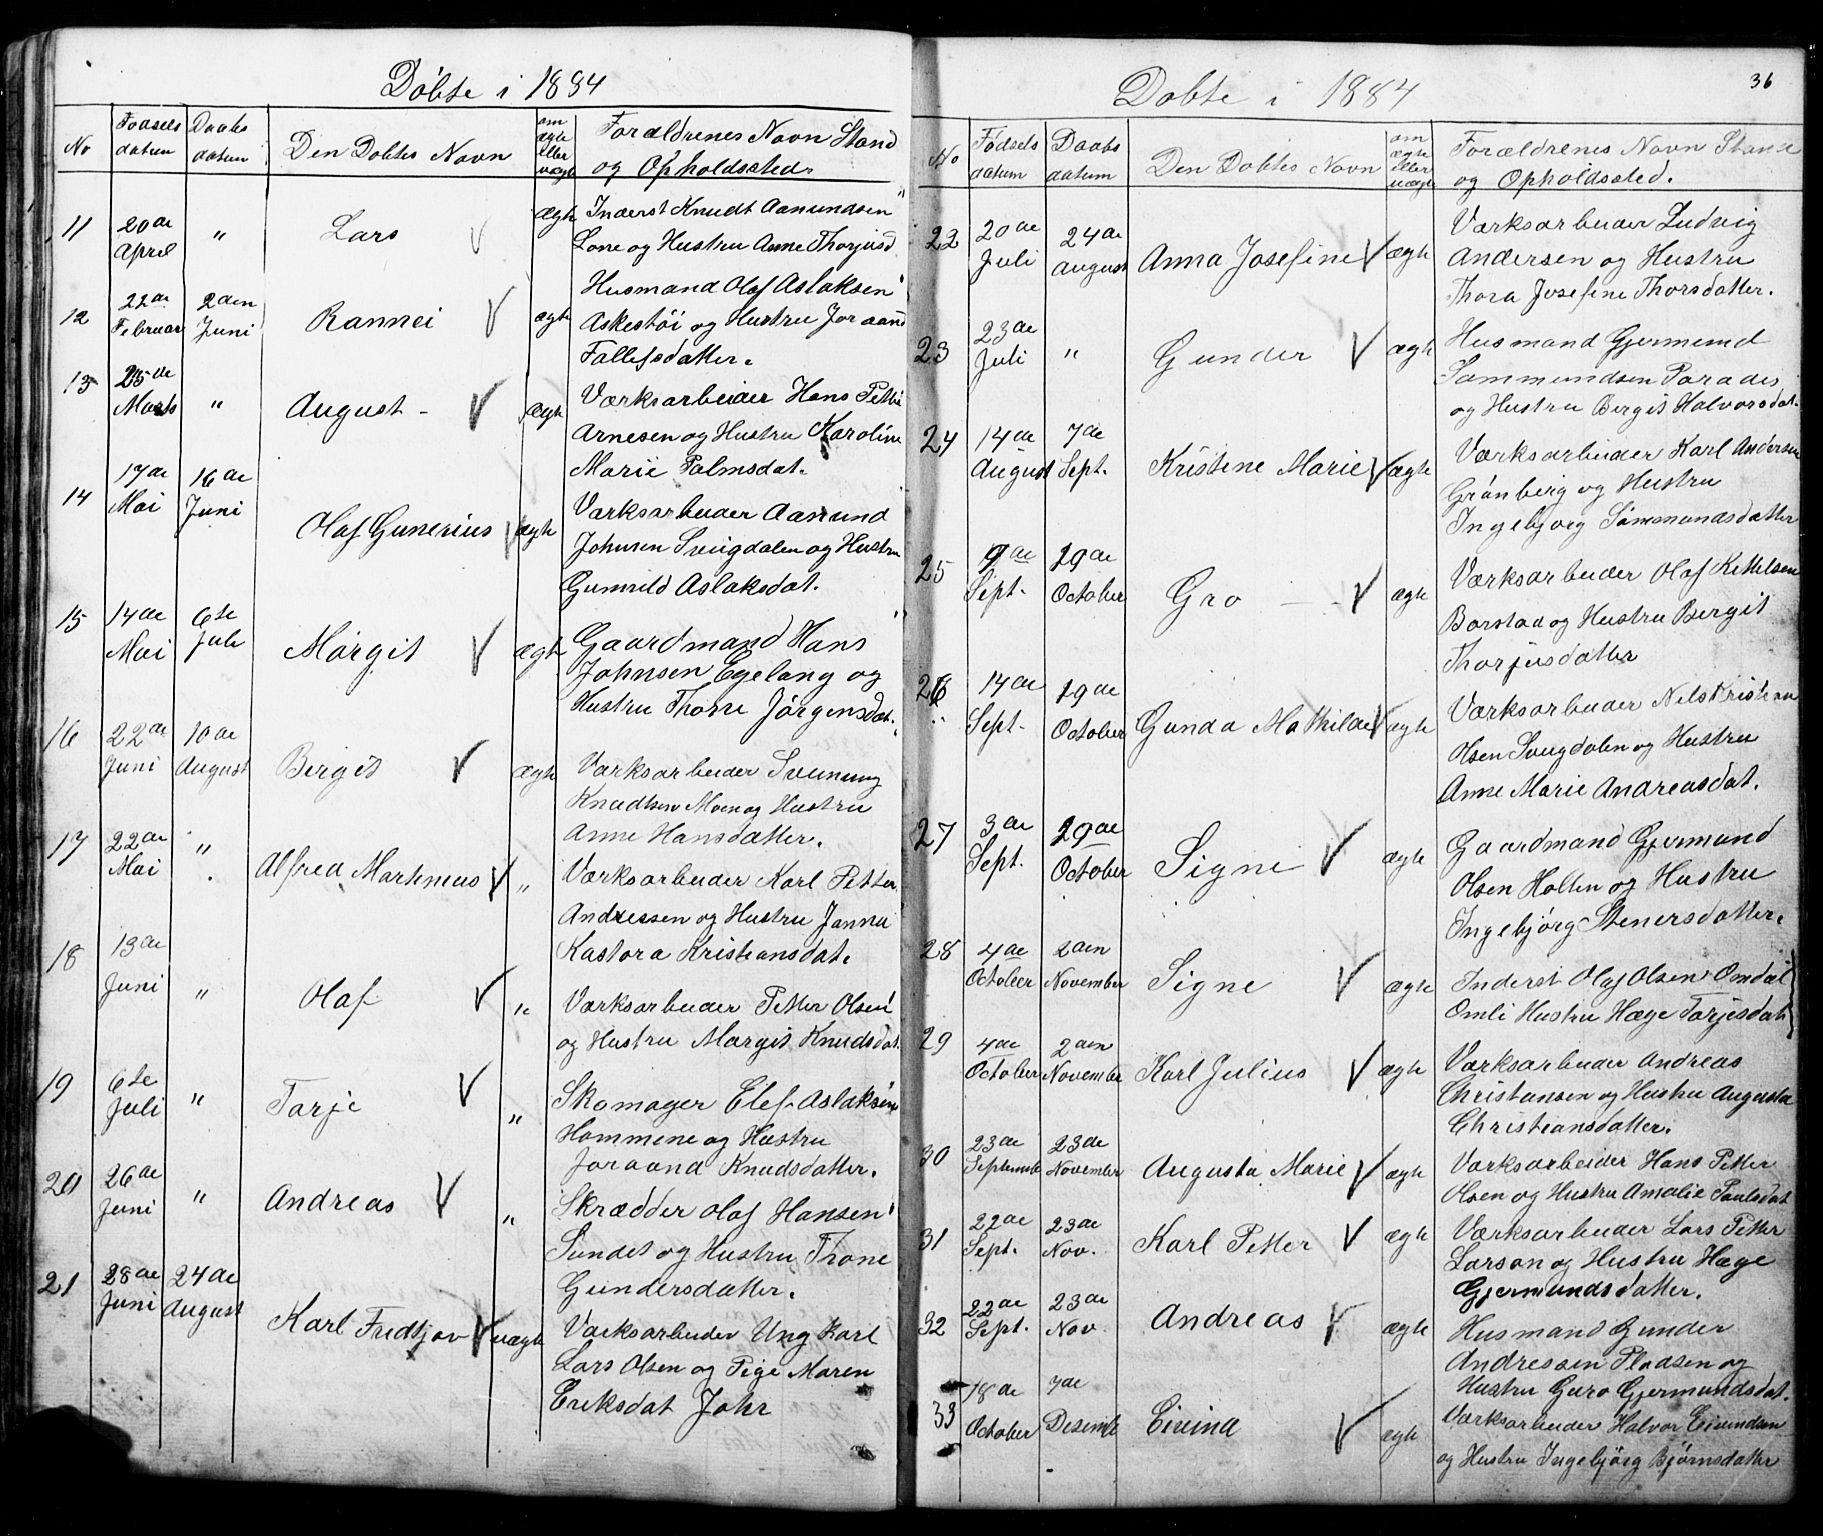 Döbte i 1884
No
Födsels datum
Daabs datum
Den Döbtes Navn
om ægte eller uægte
Forældrenes Navn Stand
og Opholdssted.
11 20de April " Lars ægte Inderst Knudt Aamundsen
Lone og Hustru Anne Thorjusd
12 22de Februar 2den Juni Rannei ægte Husmand Olaf Aslaksen
Askestöi og Hustru Joraand
Fallefsdatter.
13 25de Marts " August - ægte Værksarbeider Hans Petter
Arnesen og Hustru Karoline
Marie Palmsdat.
14 17de Mai 16de Juni Olaf Gunerius ægte Værksarbeider Aamund
Johnsen Sveigdalen og Hustru
Gunnild Aslaksdat.
15 14de Mai 6te Juli Margit ægte Gaardmand Hans
Johnsen Egelang og
Hustru Thone Jörgensdat.
16 22de Juni 10de August Birgit ægte Værksarbeider Svenung
Knudtsen Moen og Hustru
Anne Hansdatter.
17 22de Mai " Alfred Martinius " Værksarbeider Karl Petter
Andressen og Hustru Janna
Kastora Kristiansdat.
18 13de Juni " Olaf " Værksarbeider Petter Olsen
og Hustru Margit Knudsdat.
19 6te Juli " Tarje " Skomager Elef Aslaksen
Hommene og Hustru
Joraand Knudsdatter.
20 26de Juni " Andreas " Skrædder Olaf Hansen
Sundet og Hustru Thone
Gundersdatter.
21 28de Juni 24de August Karl Fredtjov uægte Værksarbeider Ung Karl
Lars Olsen og Pige Maren
Eriksdat Johr
36
Döbte i 1884
No
Födsels datum
Daabs datum
Den Döbtes Navn
om ægte eller uægte
Forældrenes Navn Stand
og Opholdssted.
22 20de Juli 24de August Anna Josefine ægte Værksarbeider Ludvig
Andersen og Hustru
Thora Josefine Thorsdatter.
23 23de Juli " Gunder ægte Husmand Gjermund
Sammundsen Paradis
og Hustru Bergit Halvorsdat.
24 14de August 7de Sept. Kristine Marie ægte Værksarbeider Karl Andersen
Grönberg og Hustru
Ingebjorg Sammundsdatter
25 9de Sept. 19de October Gro ægte Værksarbeider Olaf Kittilsen
Borstad og Hustru Bergit
Thorjusdatter
26 14de Sept. 19de October Gunda Mathilde ægte Værksarbeider Nils Kristian
Olsen Sveigdalen og Hustru
Anne Marie Andreasdat.
27 3de Sept. 19de October Signe ægte Gaardmand Gjermund
Olsen Holten og Hustru
Ingebjörg Stenersdatter.
28 4de October 2den November Signe ægte Inderst Olaf Olsen Omdal
Omli Hustru Hæge Tarjesdat
29 4de October 2den November Karl Julius ægte Værksarbeider Andreas
Christiansen og Hustru Augusta
Christiansdatter.
30 23de Septembr 23de November Augusta Marie ægte Værksarbeider Hans Petter
Olsen og Hustru Amalie Paulsdat
31 22de Sept. 23de Nov. Karl Petter ægte Værksarbeider Lars Petter
Larson og Hustru Hæge
Gjermundsdatter.
32 22de Sept. 23de Nov Andreas ægte Husmand Gunder
Andressen Pladsen og
Hustru Guro Gjermundsdat.
33 18de October 7de Desemb Eivind ægte Værksarbeider Halvor Eivindsen
og Hustru Ingebjörg Björnsdatter